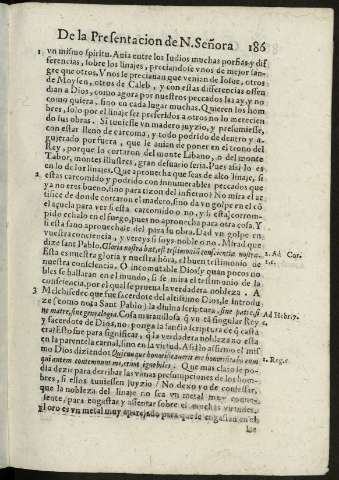 De la Presentacion de N. Señora 186
1 vn mismo spiritu. Auia entre los Iudios muchas porfias y dif
ferencias, sobre los linajes, preciandose vnos de mejor san-
gre que otros. Vnos se preciauan que venian de Iosue, otros
de Moysen, otros de Caleb, y con estas differencias offen
dian a Dios, como agora por nuestros peccados las ay, y no
como quiera, sino en cada lugar muchas. Quieren los hom
bres, solo por el linaje ser preferidos a otros no lo merecien
do sus obras. Si tuuiesse vn madero juyzio, y presumiesse,
con estar lleno de carcoma, y todo podrido de dentro y a-
gujerado por fuera, que le auian de poner en el trono del
Rey, porque lo cortaron del monte Libano, o del monte
Tabor, montes illustres, gran desuario seria. Pues assi lo es
en lo de los linajes. Que aprouecha que seas de alto linaje, si
2 estas carcomido y podrido con innumerables peccados que
ya no eres bueno, sino para tizon del infierno? No mira el ar
tifice de donde cortaron el madero, sino da vn golpe en el cō
el açuela para ver si esta carcomido o no, y si esta, corrom-
pido echalo en el fuego, pues no aprouecha para otra cosa. Y
si esta sano aprouechase del para su obra. Dad vn golpe en
vuestra conciencia, y vereys si soys noble o no. Mirad que
dize sant Pablo. Gloria nostra hæc est, testimonium conscientiæ nostræ. 2. Ad Cor.
Esta es nuestra gloria y nuestra hōra, el buen testimonio de
nuestra consciencia. O incomutable Dios, y quan pocos no
bles se hallaran en el mundo, si se mira el testimonio de la
consciencia, por el qual se prueua la verdadera nobleza. A
3 Melchisedec que fue sacerdote del altissimo Dios, le introdu
ze (como nota Sant Pablo) la diuina scriptura, sine patre, si Ad Hebr. 7.
ne matre, sine genealogia. Cosa marauillosa q̄ vn tā singular Rey
y sacerdote de Dios, no ponga la sancta scriptura de q̄ casta
era: esto fue para significar, q̄ la verdadera nobleza no esta
en la parentela carnal, sino en la virtud. Assi lo affirmo el mis
mo Dios diziendo: Quicunque honorificauerit me honorificabo eum, 1. Reg. 2.
qui autem contemnunt me, erunt ignobiles. Que mas claro se po-
dia dezir para derribar las vanas presumpciones de los hom-
bres, si ellos tuuiessen juyzio? No dexo yo de confessar,
que la nobleza del linaje no sea vn metal muy conue-
niente, para engastar y assentar sobre el muchas virtudes.
El oro es vn metal muy aparejado para que se engasten en el